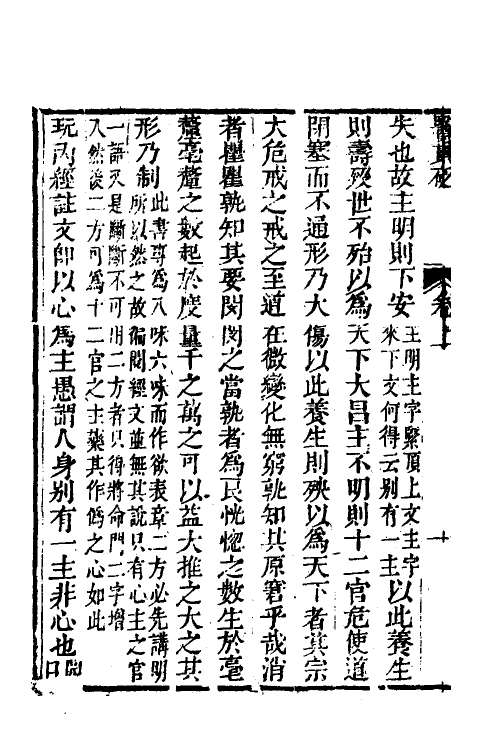 失也故主明則下安主明主字緊頂上文主字來下文何得云別有一主以此養生
則壽歿世不殆以爲天下大昌主不明則十二官危使道
閉塞而不通形乃大傷以此養生則殃以爲天下者其宗
大危戒之戒之至道在微變化無窮孰知其原窘乎哉消
者瞿瞿孰知其要閔閔之當孰者爲良恍惚之數生於毫
釐毫釐之數起於度量千之萬之可以益大推之大之其
形乃制此書專爲八味六味而作欲表章二方必先講明所以然之故徧閱經文並無其說只有心主之官
一語又是斷斷不可用二方者只得將命門二字增入然後二方可爲十二官之主藥其作僞之心如此
玩內經註文卽以心爲主愚謂人身别有一主非心也開口